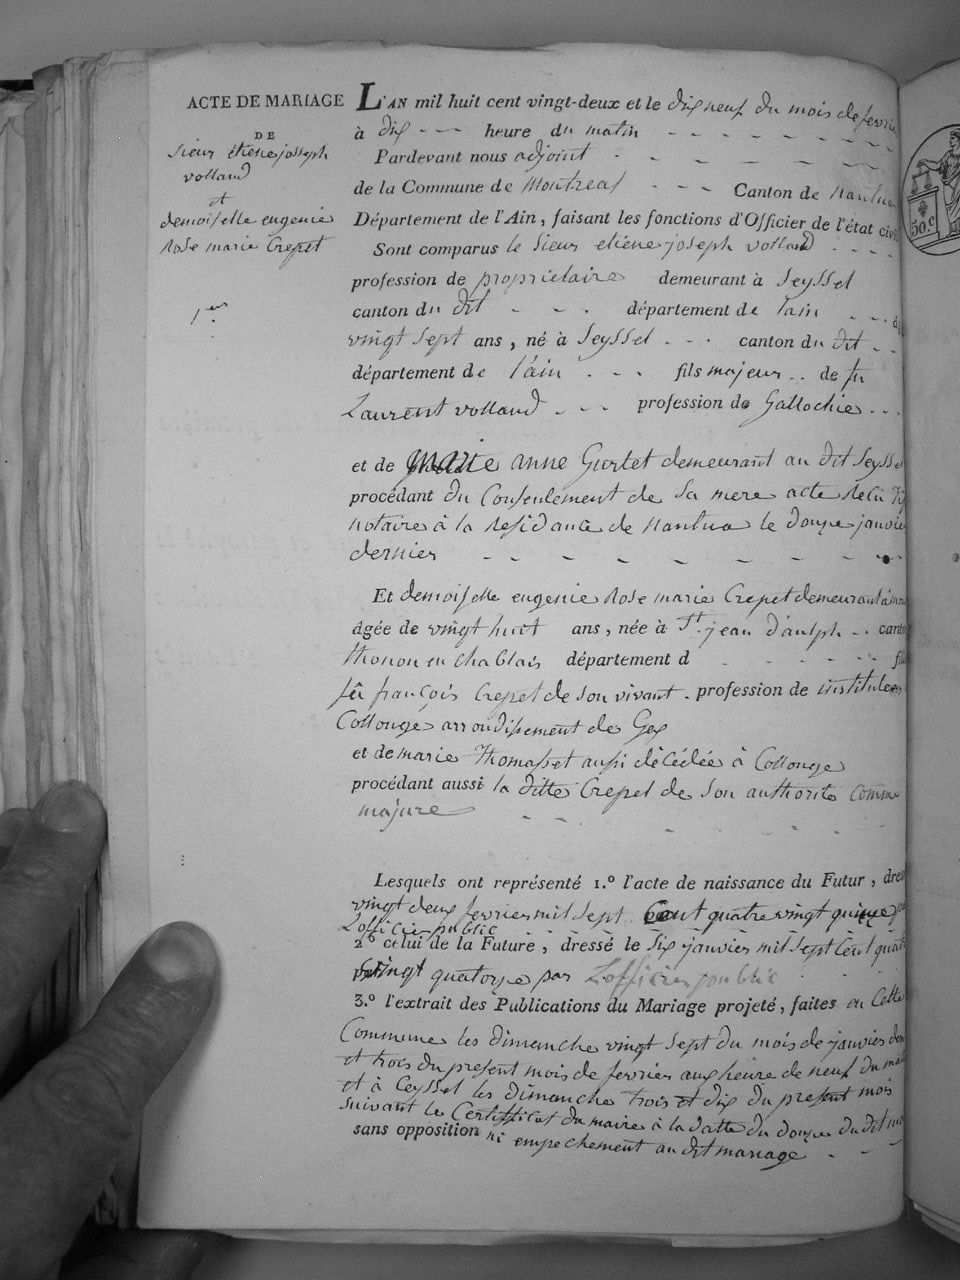 ACTE DE MARIAGE
DE
Sieur étiene joseph
volland
et
demoiselle eugenie
Rose marie Crepet
1er
L'AN mil huit cent vingt-deux et le dix neuf du mois de fevrier
à dix --- heure du matin
Pardevant nous adjoint
de la Commune de Montreal --- Canton de nantua
Département de l'Ain, faisant les fonctions d'Officier de l'état civil
Sont comparus le Sieur etiene joseph volland
profession de propriétaire demeurant à Seyssel
canton du dit --- département de lain
vingt sept ans, né à Seyssel --- canton du dit
département de l'ain --- fils majeur -- de fu
Laurent volland --- profession de
et de Marie anne demeurant au dit Seyssel
procédant du Consentement de Sa mere acte Recu
notaire à la Residance de nantua le douze janvier
dernier
Et demoiselle eugenie Rose marie Crepet demeurant à
âgée de vingt huit ans, née à St. jean d'aulph -- canton
thonon en chablais département d
feû françois Crepet de son vivant - profession de
Collonge arrondissement de Gex
et de marie Thomasset aussi dècédée à Collonge
procédant aussi la ditte Crepet de son authorité comme
majure
Lesquels ont représenté 1.º l'acte de naissance du Futur, dressé
vingt deux fevrier mil sept Cent quatre vingt quinze
Lofficier public
2º celui de la Future, dressé le six janvier mil sept Cent quatre
vingt quatorze par Lofficier poublic
3.º l'extrait des Publications du Mariage projeté, faites en Cette
Commune les dimanche vingt sept du mois de janvier
et trois du present mois de fevrier aux heure de neuf du matin
et à Ceyssel les dimanche trois et dix du present mois
suivant le Certifficat du maire à la datte du douze du dit mois
sans opposition ni empechement au dit mariage
50.c